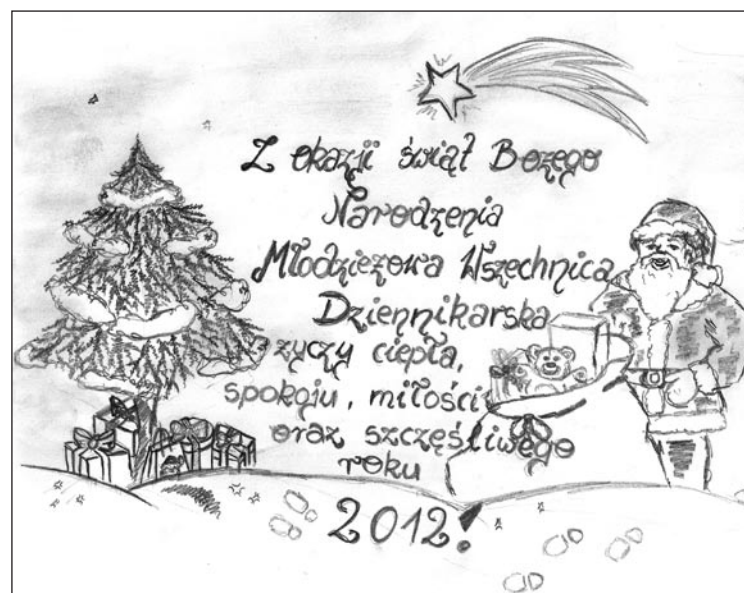 Z okazji świąt Bożego
Narodzenia
Młodzieżowa Wszechnica
Dziennikarska
życzy ciepła,
spokoju, miłości
oraz szczęśliwego
roku
2012!